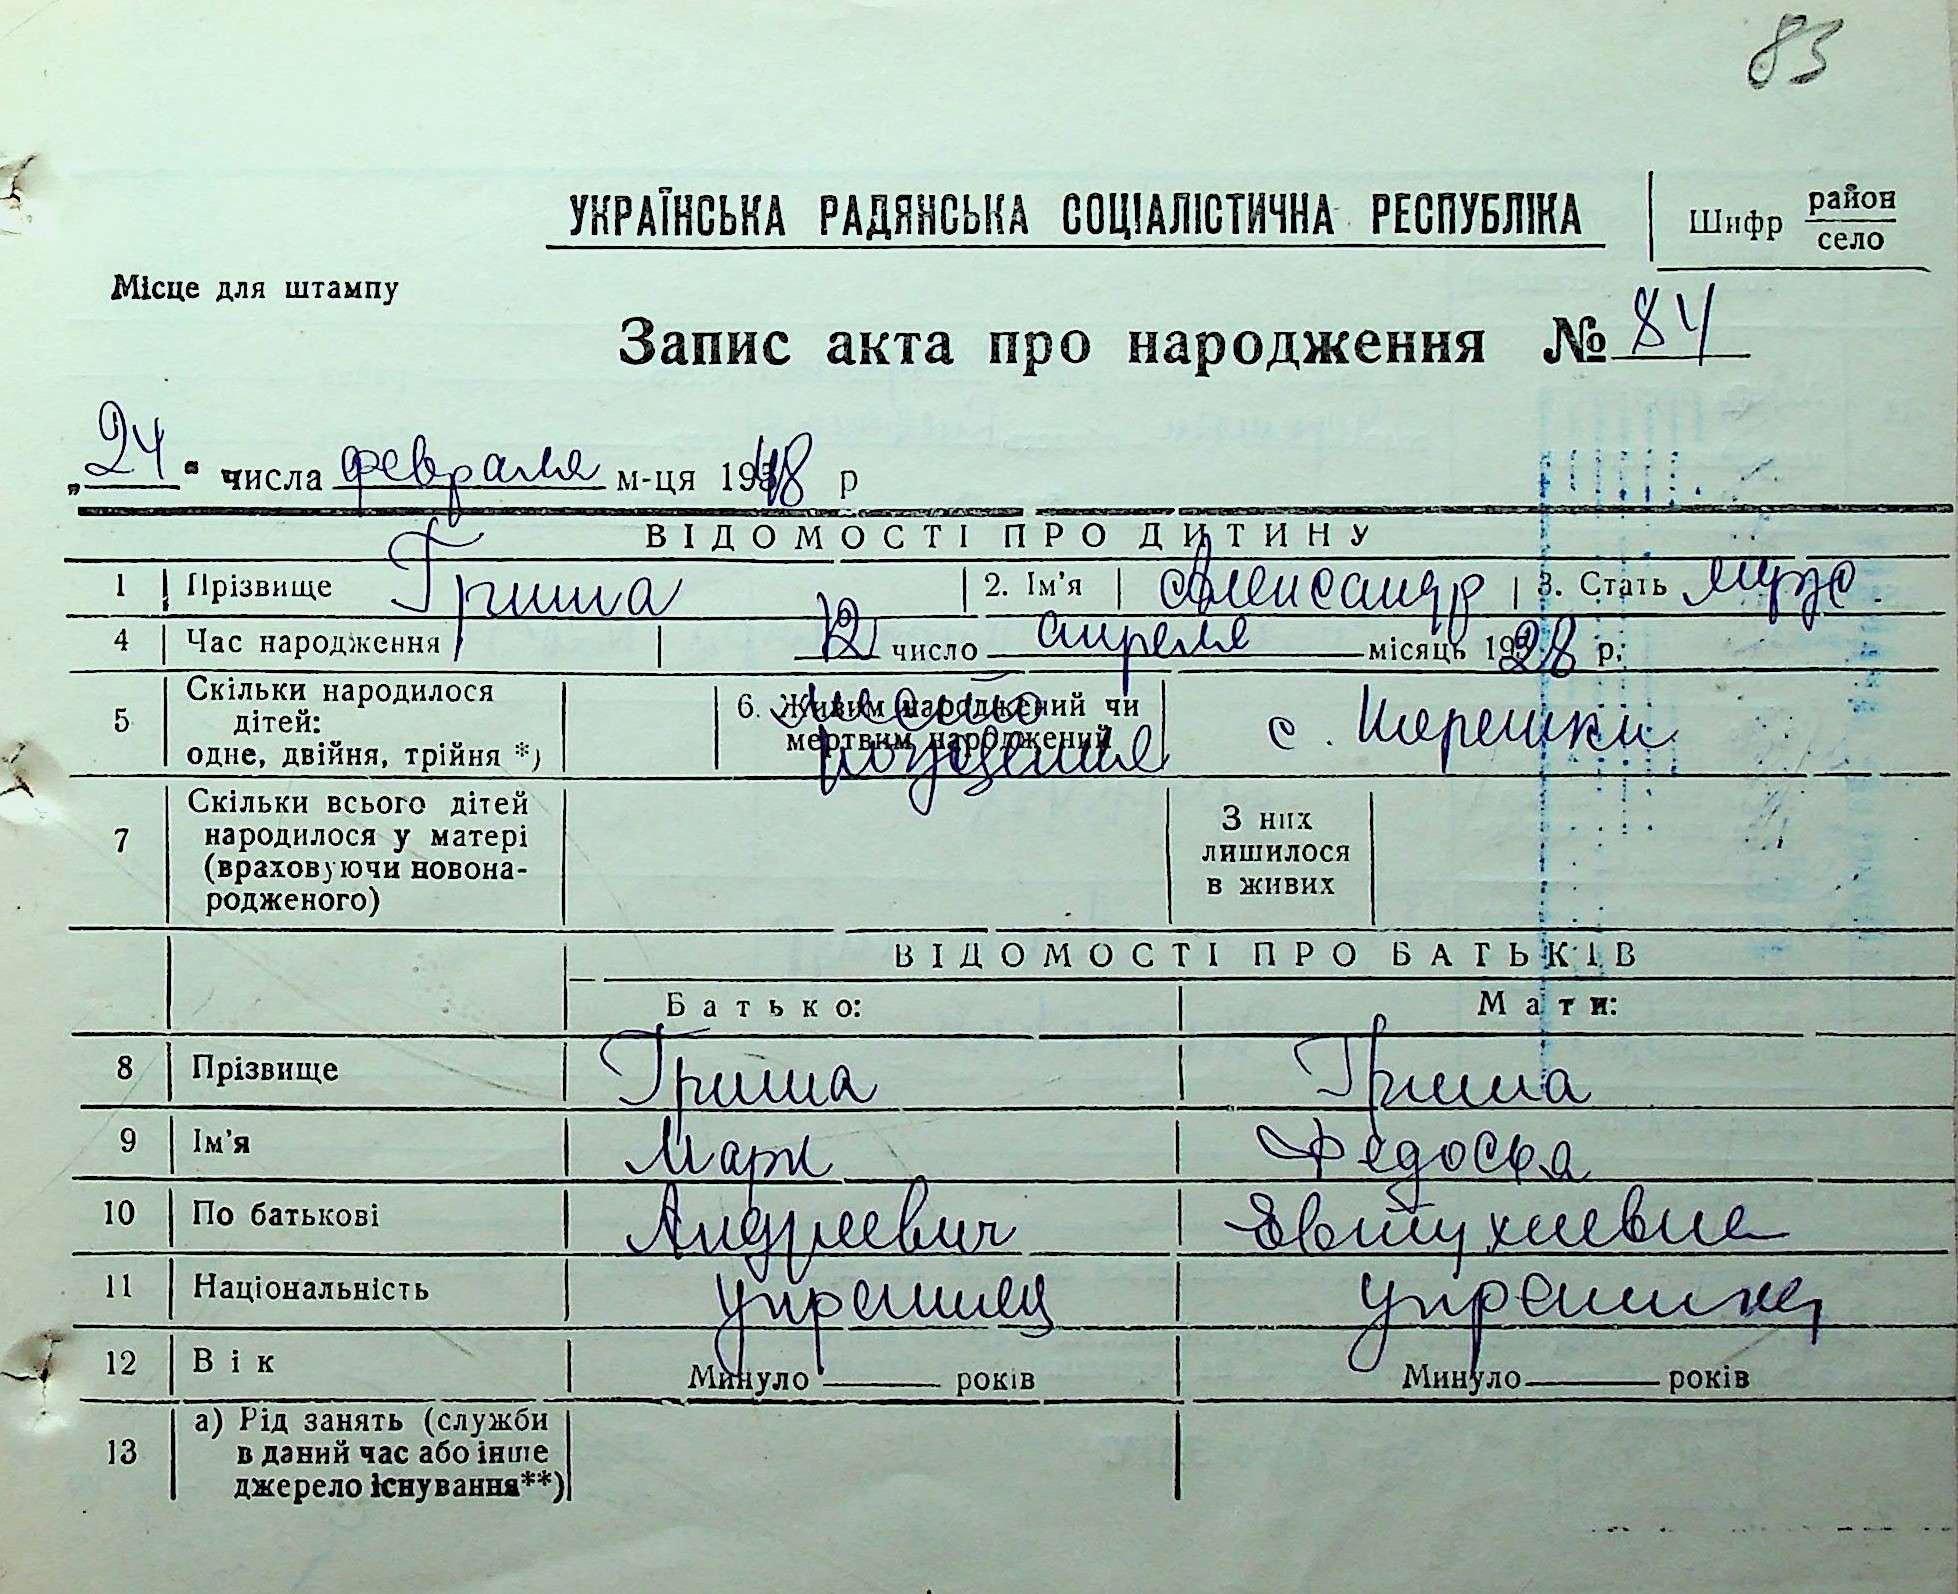 83
УКРАЇНСЬКА РАДЯНСЬКА СОЦІАЛІСТИЧНА РЕСПУБЛІКА
Шифр район
село
Місце для штампу
Запис акта про народження № 84
„24“ числа февраля м-ця 1948 р
ВІДОМОСТІ ПРО ДИТИНУ
1 Прізвище Гриша 2. Ім’я Александр 3. Стать муж
4 Час народження 12 число апреля місяць 1928 р.
5 Скільки народилося дітей: одне, двійня, трійня *) 6. Живим народжений чи мертвим народжений место рождения с. Терешки
7 Скільки всього дітей народилося у матері (враховуючи новонародженого) З них лишилося в живих
ВІДОМОСТІ ПРО БАТЬКІВ
Батько: Мати:
8 Прізвище Гриша Гриша
9 Ім’я Марк Федоська
10 По батькові Андреевич Евтухиевна
11 Національність украинец украинка
12 Вік Минуло ____ років Минуло ____ років
13 а) Рід занять (служби в даний час або інше джерело існування**)